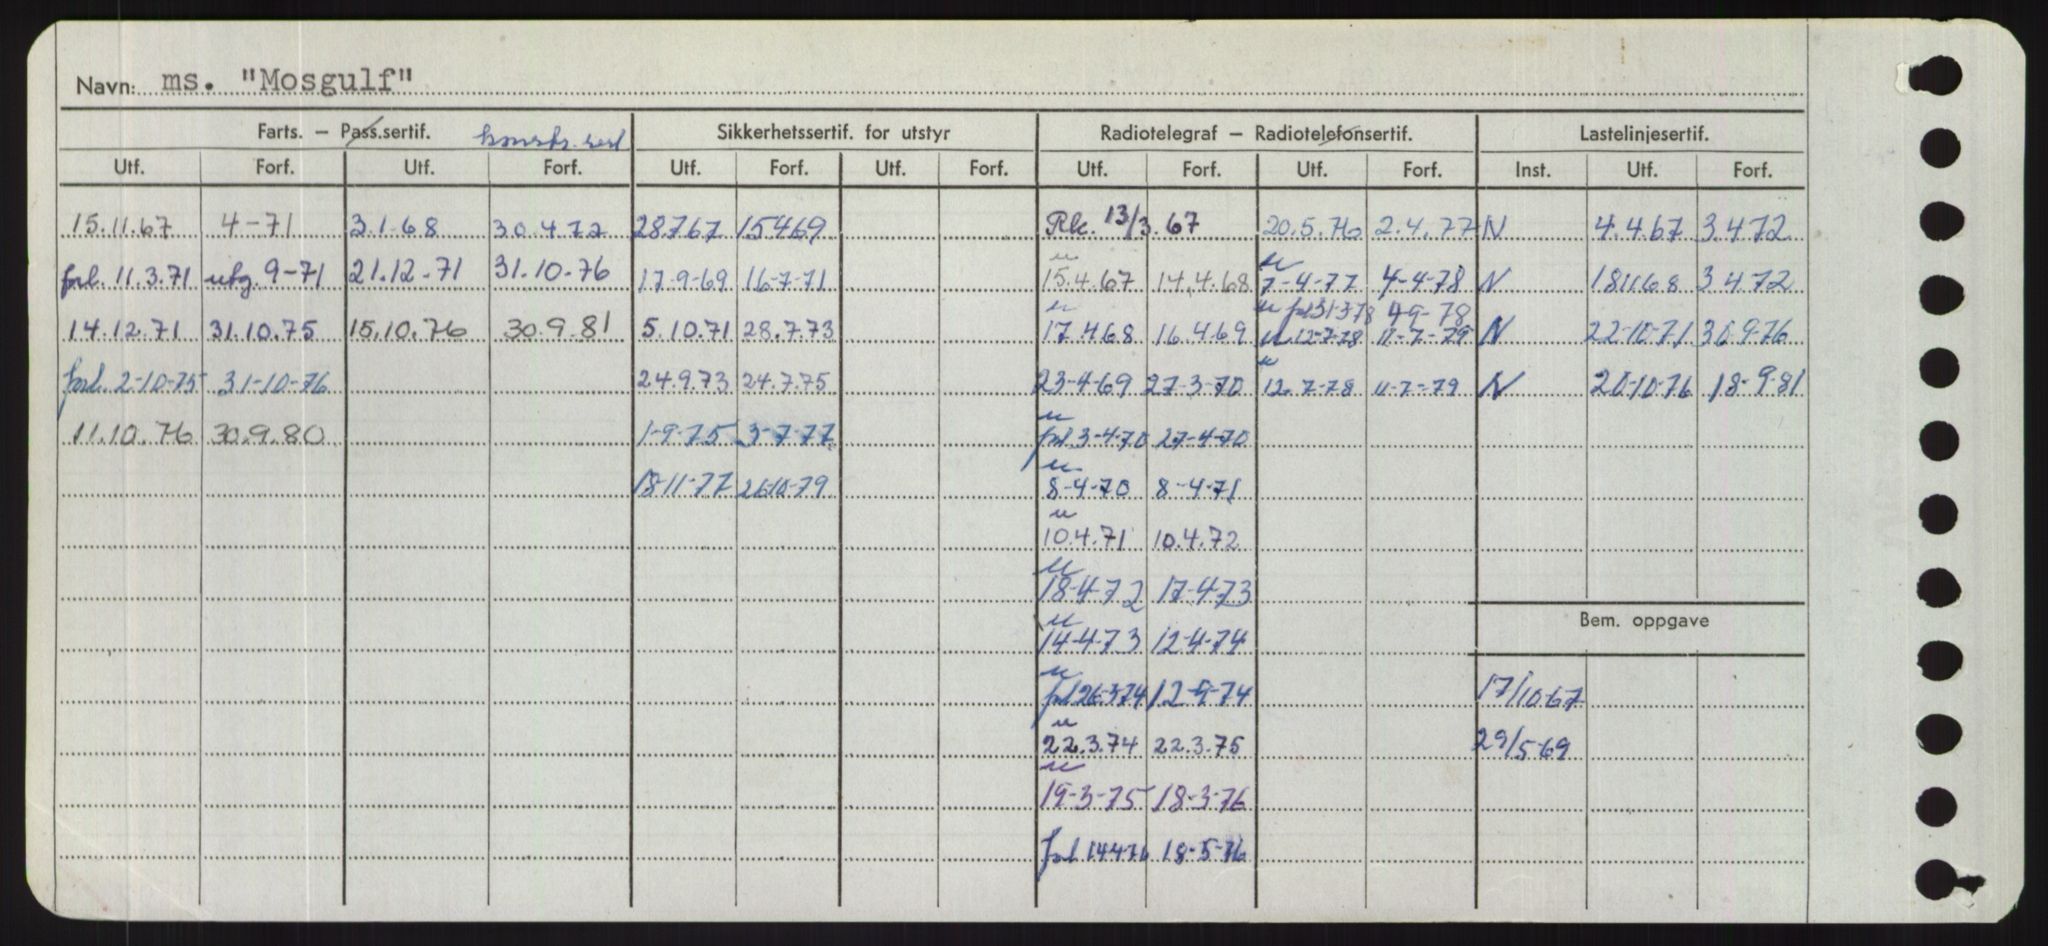 Navn: ms. "Mosgulf"
Farts. – Pass.sertif. Sikkerhetssertif. for utstyr Radiotelegraf – Radiotelefonsertif. Lastelinjesertif.
Utf. Forf. Utf. Forf. Utf. Forf. Utf. Forf. Utf. Forf. Utf. Forf. Inst. Utf. Forf.
15.11.67 4-71 3.1.68 30.4.72 28767 15469 Rk. 13/3.67 20.5.76 2.4.77 N 4.4.67 3.4.72
forl. 11.3.71 ubg. 9-71 21.12.71 31.10.76 17-9-69 16-7-71 15.4.67 14.4.68 7-4-77 4-4-78 N 181168 3.4.72
31378 49-78
14.12.71 31.10.75 15.10.76 30.9.81 5.10.71 28.7.73 17.4.68 16.4.69 12-7-78 11-7-79 N 22-10-71 30.9.76
forl. 2-10-75 31-10-76 24.9.73 24.7.75 23-4-69 27-3-70 12.7-78 11-7-79 N 20-10-76 18-9-81
11.10.76 30.9.80 1-9-75 3-7-77 forl 3-4-70 27-4-70
18-11-77 26-10-79 8-4-70 8-4-71
10.4.71 10.4.72
18-4-72 17-4-73
Bem. oppgave
14-4-73 12-4-74
forl 26-3-74 12-9-74 17/10.67
22.3.74 22.3.75 29/5-69
19-3-75 18-3-76
forl 14476 18-5-76